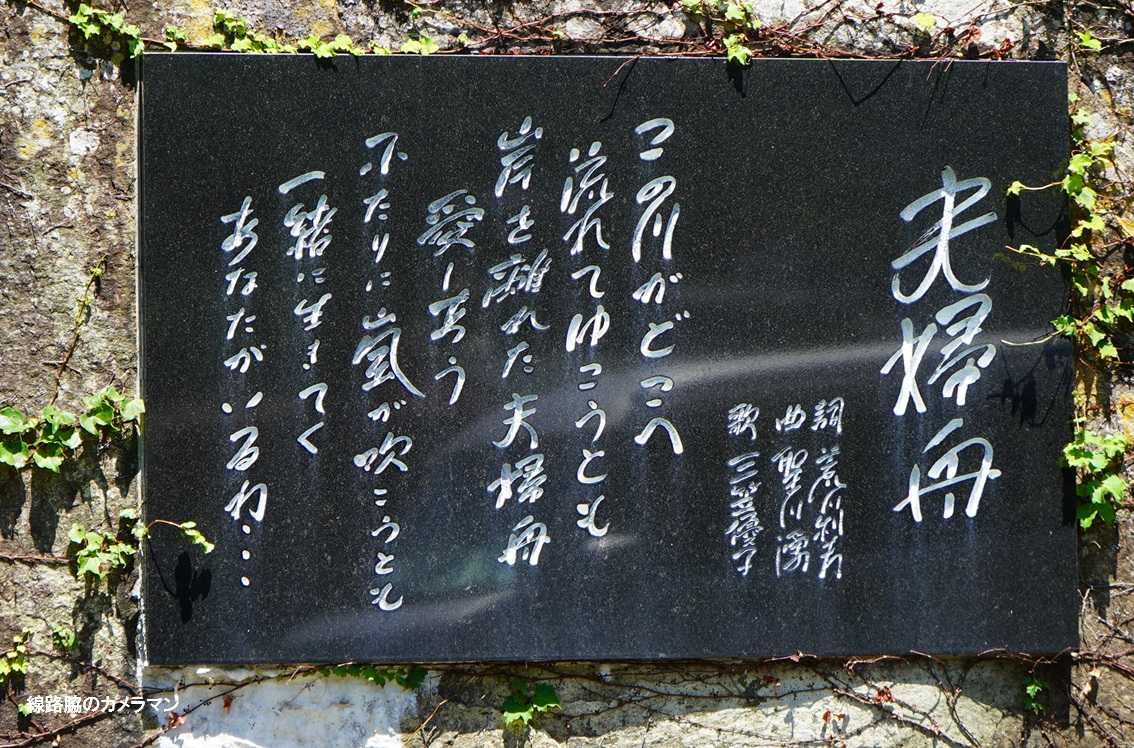 夫婦舟
詞 荒川利夫
曲 聖川湧
歌 三笠優子
この川がどこへ
流れてゆこうとも
岸を離れた夫婦舟
愛し愛う
ふたりに嵐が吹こうとも
一緒に生きてく
あなたがいるわ・・・
線路脇のカメラマン